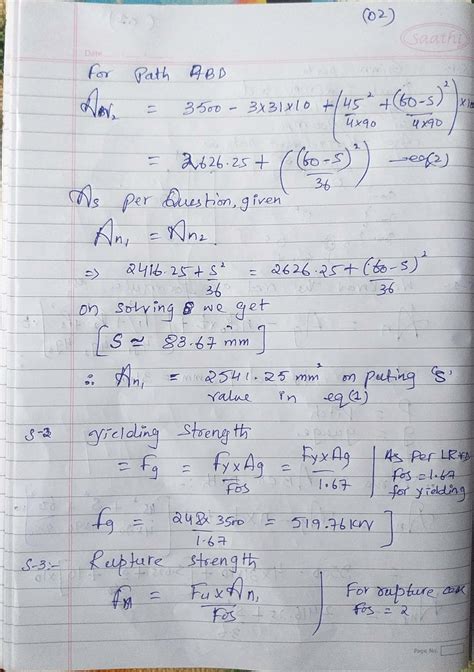 (02)
Saathi
Date
For Path ABD
An2 = 3500 - 3x31x10 + (45²/4x90 + (60-S)²/4x90) x10
= 2626.25 + ((60-S)²/36) — eq(2)
As per Question, given
An1 = An2
⇒ 2416.25 + S²/36 = 2626.25 + (60-S)²/36
on solving we get
[S ≃ 83.67 mm]
∴ An1 = 2541.25 mm² on puting 'S'
value in eq(1)
S-2 Yielding Strength
= Fg = Fy x Ag/FOS = Fy x Ag/1.67 | As Per LRFD
FOS = 1.67
for yielding
fg = 248x3500/1.67 = 519.76 KN]
S-3:- Rupture strength
= Fu x An1/FOS | For rupture case
FOS = 2
Page No.